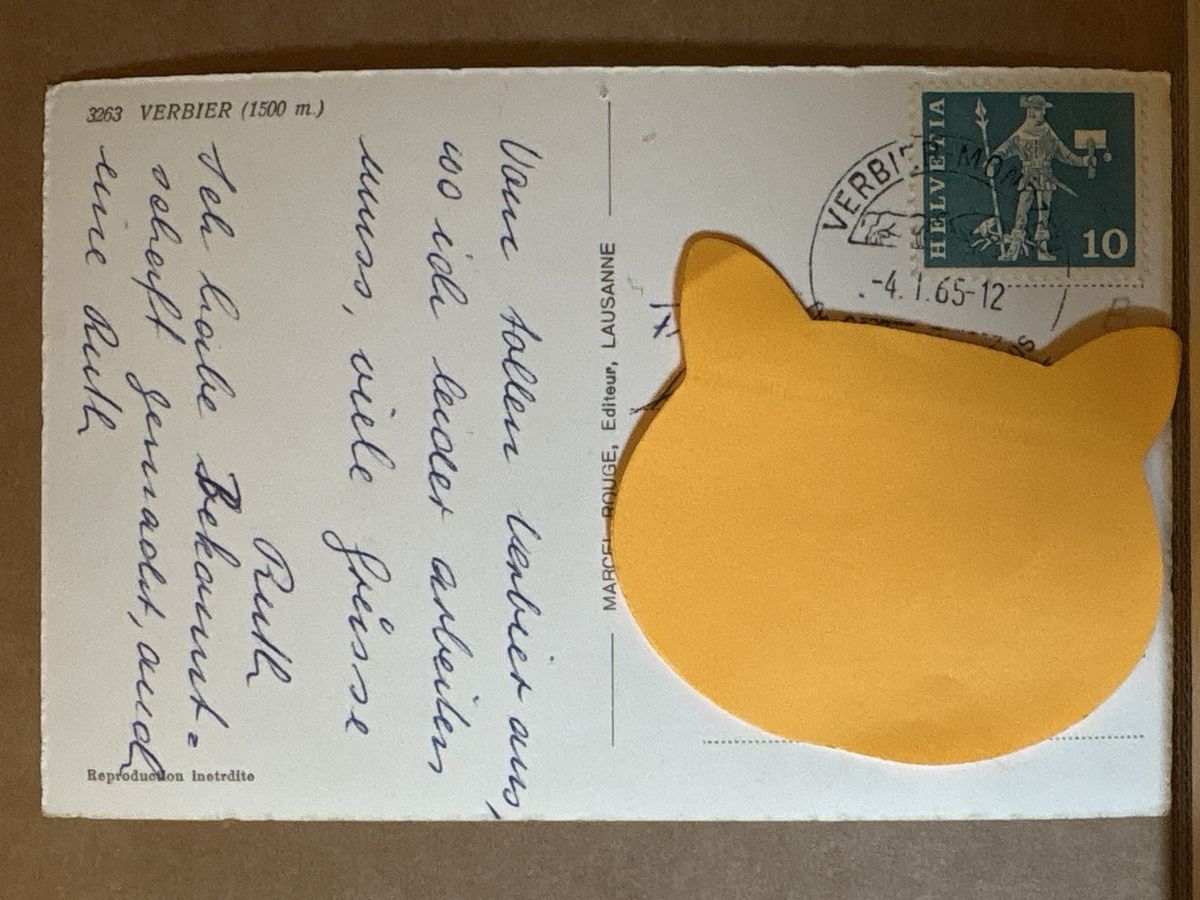 3263 VERBIER (1500 m.)
Vom tollen Verbier aus,
wo ich leider arbeiten
muss, viele Grüsse
Ruth
Ich habe Bekannt=
schaft gemacht, auch
eine Ruth
Reproduction inetrdite
MARCEL ROUGE, Editeur, LAUSANNE
HELVETIA
10
VERBIER-MON
-4.1.65-12